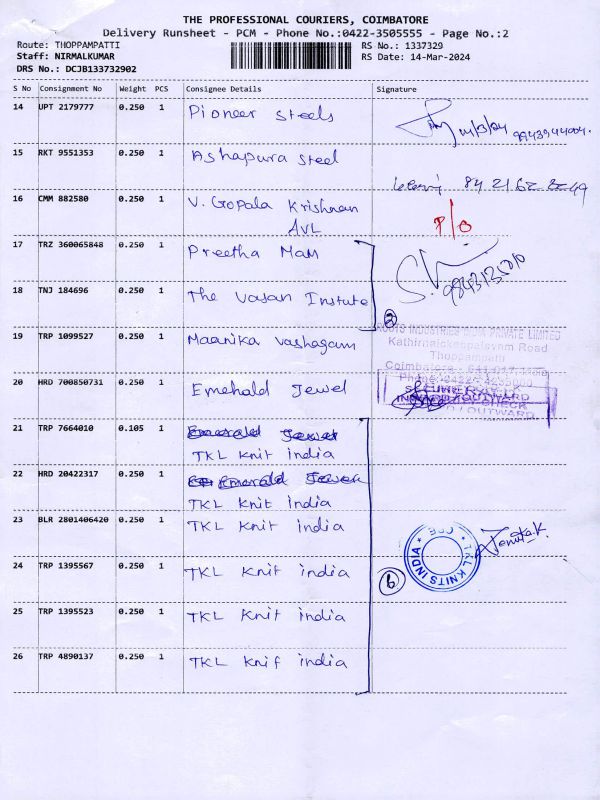 THE PROFESSIONAL COURIERS, COIMBATORE
Delivery Runsheet - PCM - Phone No.:0422-3505555 - Page No.:2
Route: THOPPAMPATTI RS No.: 1337329
Staff: NIRMALKUMAR RS Date: 14-Mar-2024
DRS No.: DCJB133732902
S No Consignment No Weight PCS Consignee Details Signature
14 UPT 2179777 0.250 1 Pioneer Steels
14/3/24 9943944004.
15 RKT 9551353 0.250 1 Ashapura Steel
16 CMM 882580 0.250 1 V. Gopala Krishnan
AVL
P/O
17 TRZ 360065848 0.250 1 Preetha Mam
9843135010
18 TNJ 184696 0.250 1 The Vasan Instute
2
19 TRP 1099527 0.250 1 Maanika Vashagam
ROOTS INDUSTRIES INDIA PRIVATE LIMITED
Kathirnaickenpalayam Road
Thoppampatti
Coimbatore - 641 017. India
20 HRD 700850731 0.250 1 Emehald Jewel
21 TRP 7664010 0.105 1 Emerald Jewel
TKL Knit India
22 HRD 20422317 0.250 1 Emerald Jewel
TKL Knit India
23 BLR 2801406420 0.250 1 TKL Knit India
TKL KNITS INDIA
24 TRP 1395567 0.250 1 TKL Knit india
6
25 TRP 1395523 0.250 1 TKL Knit india
26 TRP 4890137 0.250 1 TKL Knit india